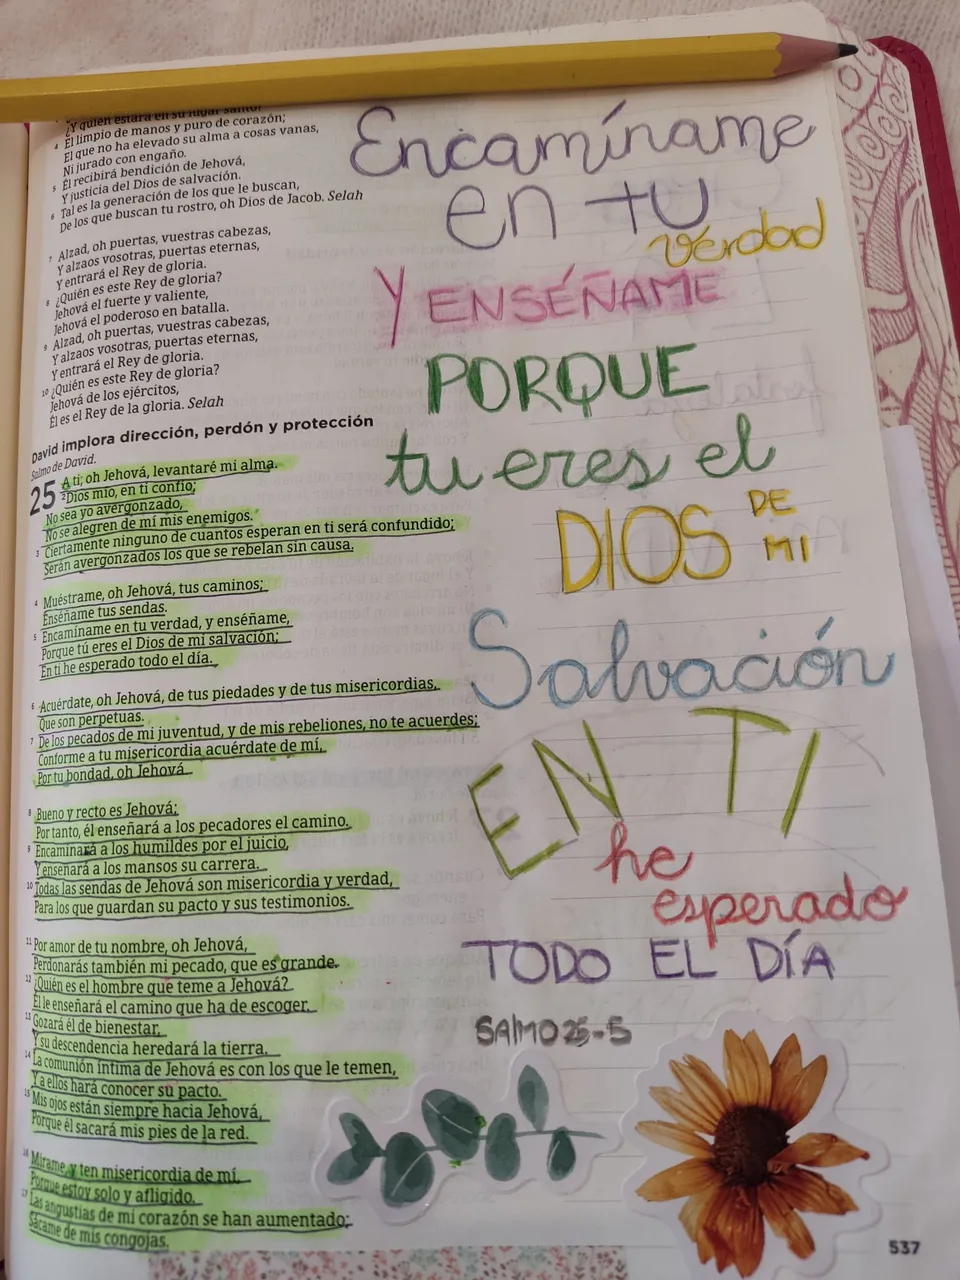 ¿Y quién estará en su lugar santo?
4 El limpio de manos y puro de corazón;
El que no ha elevado su alma a cosas vanas,
Ni jurado con engaño.
5 Él recibirá bendición de Jehová,
Y justicia del Dios de salvación.
6 Tal es la generación de los que le buscan,
De los que buscan tu rostro, oh Dios de Jacob. Selah
7 Alzad, oh puertas, vuestras cabezas,
Y alzaos vosotras, puertas eternas,
Y entrará el Rey de gloria.
8 ¿Quién es este Rey de gloria?
Jehová el fuerte y valiente,
Jehová el poderoso en batalla.
9 Alzad, oh puertas, vuestras cabezas,
Y alzaos vosotras, puertas eternas,
Y entrará el Rey de gloria.
10 ¿Quién es este Rey de gloria?
Jehová de los ejércitos,
Él es el Rey de la gloria. Selah
David implora dirección, perdón y protección
Salmo de David.
25 A ti, oh Jehová, levantaré mi alma.
2 Dios mío, en ti confío;
No sea yo avergonzado,
No se alegren de mí mis enemigos.
3 Ciertamente ninguno de cuantos esperan en ti será confundido;
Serán avergonzados los que se rebelan sin causa.
4 Muéstrame, oh Jehová, tus caminos;
Enséñame tus sendas.
5 Encamíname en tu verdad, y enséñame,
Porque tú eres el Dios de mi salvación;
En ti he esperado todo el día.
6 Acuérdate, oh Jehová, de tus piedades y de tus misericordias,
Que son perpetuas.
7 De los pecados de mi juventud, y de mis rebeliones, no te acuerdes;
Conforme a tu misericordia acuérdate de mí,
Por tu bondad, oh Jehová.
8 Bueno y recto es Jehová;
Por tanto, él enseñará a los pecadores el camino.
9 Encaminará a los humildes por el juicio,
Y enseñará a los mansos su carrera.
10 Todas las sendas de Jehová son misericordia y verdad,
Para los que guardan su pacto y sus testimonios.
11 Por amor de tu nombre, oh Jehová,
Perdonarás también mi pecado, que es grande.
12 ¿Quién es el hombre que teme a Jehová?
Él le enseñará el camino que ha de escoger.
13 Gozará él de bienestar,
Y su descendencia heredará la tierra.
14 La comunión íntima de Jehová es con los que le temen,
Y a ellos hará conocer su pacto.
15 Mis ojos están siempre hacia Jehová,
Porque él sacará mis pies de la red.
16 Mírame, y ten misericordia de mí,
Porque estoy solo y afligido.
17 Las angustias de mi corazón se han aumentado;
Sácame de mis congojas.
Encamíname
en tu
verdad
Y ENSÉÑAME
PORQUE
tu eres el
DIOS DE
MI
Salvación
EN TI
he
esperado
TODO EL DÍA
SAlMO 25-5
537